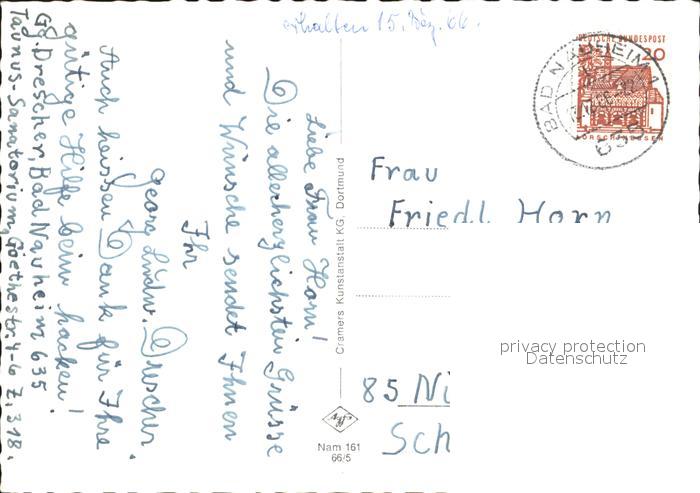 erhalten 15. Dez. 66.
Liebe Frau Horn!
Die allerherzlichsten Grüsse
und Wünsche sendet Ihnen
Ihr
Georg Ludw. Drescher.
Auch heissen Dank für Ihre
gütige Hilfe beim packen!
Gg. Drescher, Bad Nauheim 635
Taunus-Sanatorium, Goethestr. 4-6 Z. 318.
Cramers Kunstanstalt KG. Dortmund
Nam 161
66/5
DEUTSCHE BUNDESPOST
20
LORSCH/HESSEN
BAD NAUHEIM
635
Frau
Friedl Horn
85 Nü
Sch
privacy protection
Datenschutz